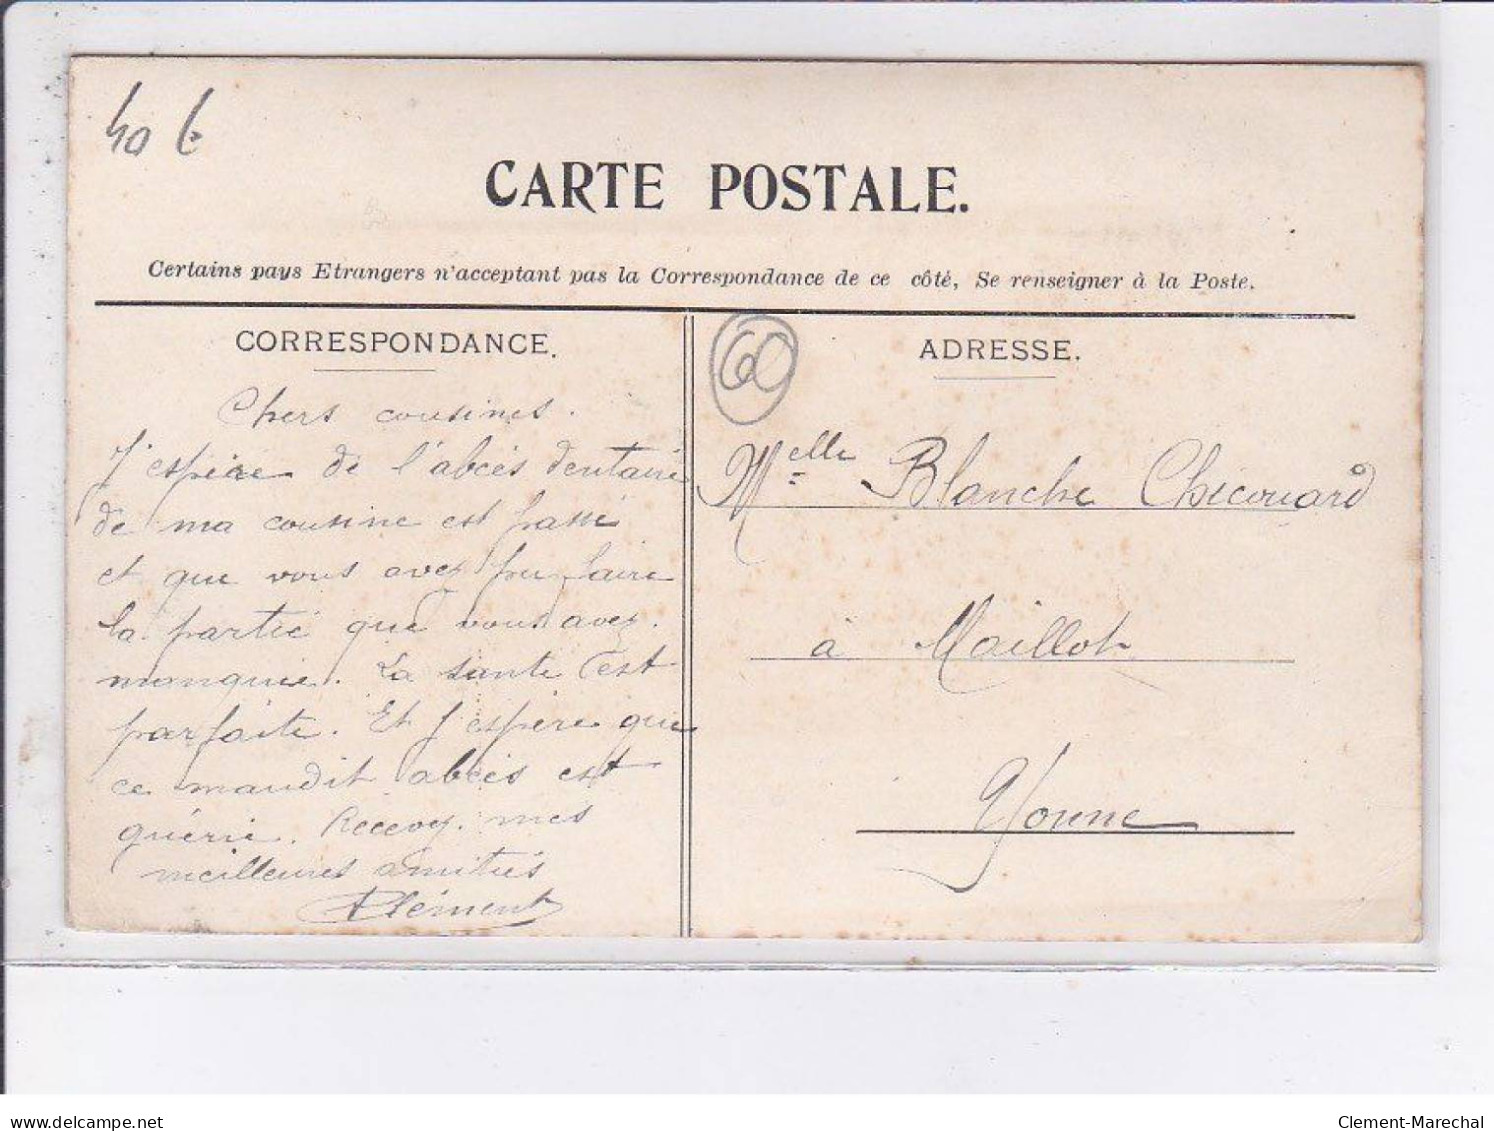 40 €
CARTE POSTALE.
Certains pays Etrangers n'acceptant pas la Correspondance de ce côté, Se renseigner à la Poste.
CORRESPONDANCE.
Chers cousines.
J'espère de l'abcès dentaire
de ma cousine est passé
et que vous avez pu faire
la partie que vous avez
manquée. La santé est
parfaite. Et j'espère que
ce maudit abcès est
guérie. Recevez mes
meilleures amitiés
Clément
60
ADRESSE.
Melle Blanche Chicouard
à Maillot
Yonne
delcampe.net
Clement-Marechal